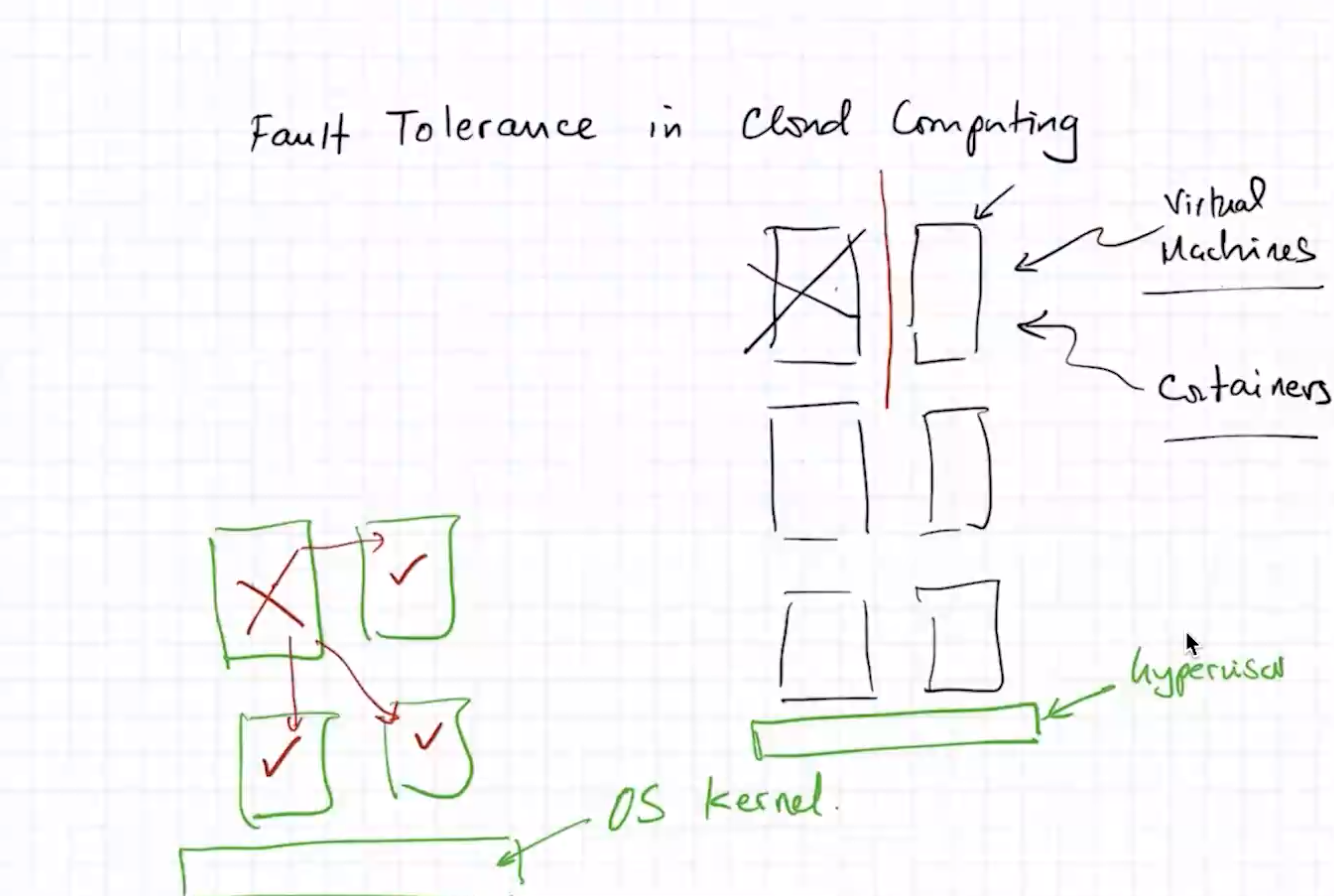 Fault Tolerance in Cloud Computing
Virtual
Machines
Containers
hypervisor
OS kernel.